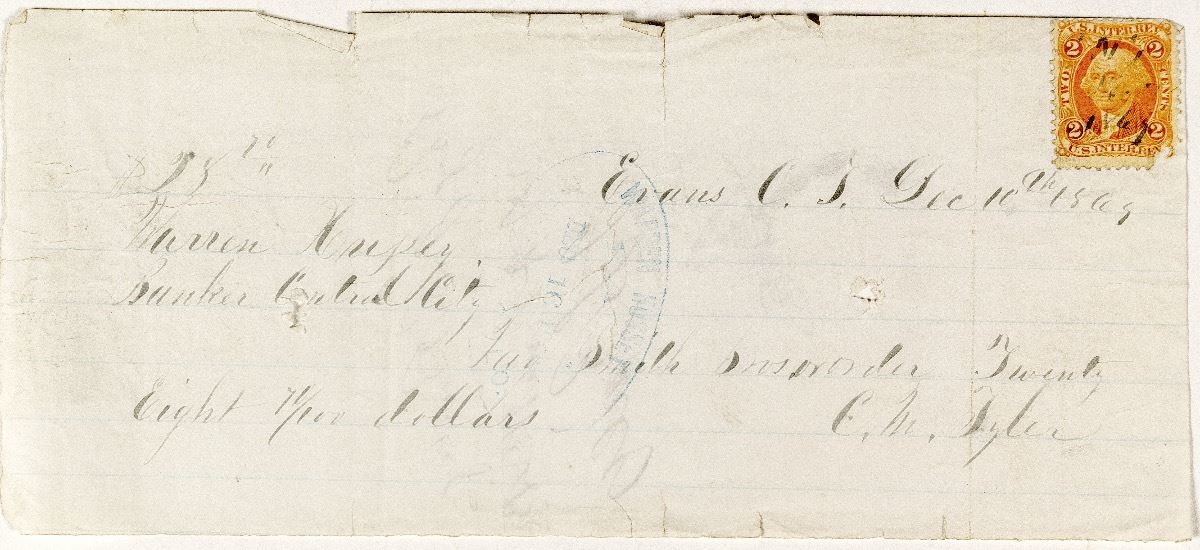 U.S. INTER. REV.
2 2
TWO CENTS
2 2
U.S. INTER. REV.
$28 70
Evans C. T. Dec 10th 1869
Warren Hussey
Banker Central City
Pay Smith Bros or order Twenty
Eight 70/100 dollars
C. M. Tyler
WARREN HUSSEY